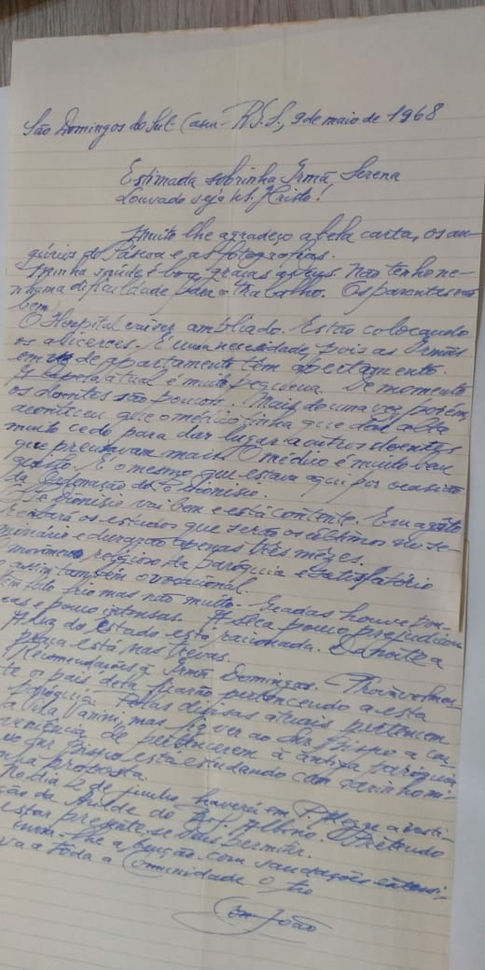 São Domingos do Sul (Casca - R.G.S.), 9 de maio de 1968
Estimada sobrinha Irmã Serena
Louvado seja N.S. Cristo!
Muito lhe agradeço a bela carta, os au-
gúrios de Páscoa e as fotografias.
Minha saúde é boa, graças a Deus. Não tenho ne-
nhuma dificuldade para o trabalho. Os parentes vão
bem.
O Hospital vai ser ampliado. Estão colocando
os alicerces. É uma necessidade, pois as Irmãs
em vez de apartamento têm apertamento.
A capela atual é muito pequena. De momento
os doentes são poucos. Mais de uma vez porém,
aconteceu que o médico tinha que dar alta
muito cedo para dar lugar a outros doentes
que precisavam mais. O médico é muito bem
quisto. É o mesmo que estava aqui por ocasião
da Ordenação do P. Dionísio.
Pe Dionísio vai bem e está contente. Em agôsto
os estudos que serão os últimos no se-
minário e durarão apenas três mêzes.
movimento religioso da paróquia é satisfatório
e assim também o vocacional.
Tem sido frio mas não muito. Geadas houve pou-
cas e pouco intensas. A sêca pouco prejudicou
A luz do Estado está racionada. De noite a
praça está nas trevas.
Recomendações à Irmã Domingas. Provàvelmen-
te os pais dela ficarão pertencendo a esta
paróquia. Pelas divisas atuais pertencem
a Vila Vanini, mas fiz ver ao Sr. Bispo a con-
veniência de pertencerem à antiga paróquia.
O Sr. Bispo está estudando com carinho mi-
nha proposta.
No dia 2 de junho haverá em P. Alegre a vesti-
ção da Anilde do Albino. Pretendo
estar presente, se Deus permitir.
Envio-lhe a benção com saudações extensi-
vas a toda a Comunidade o tio
João